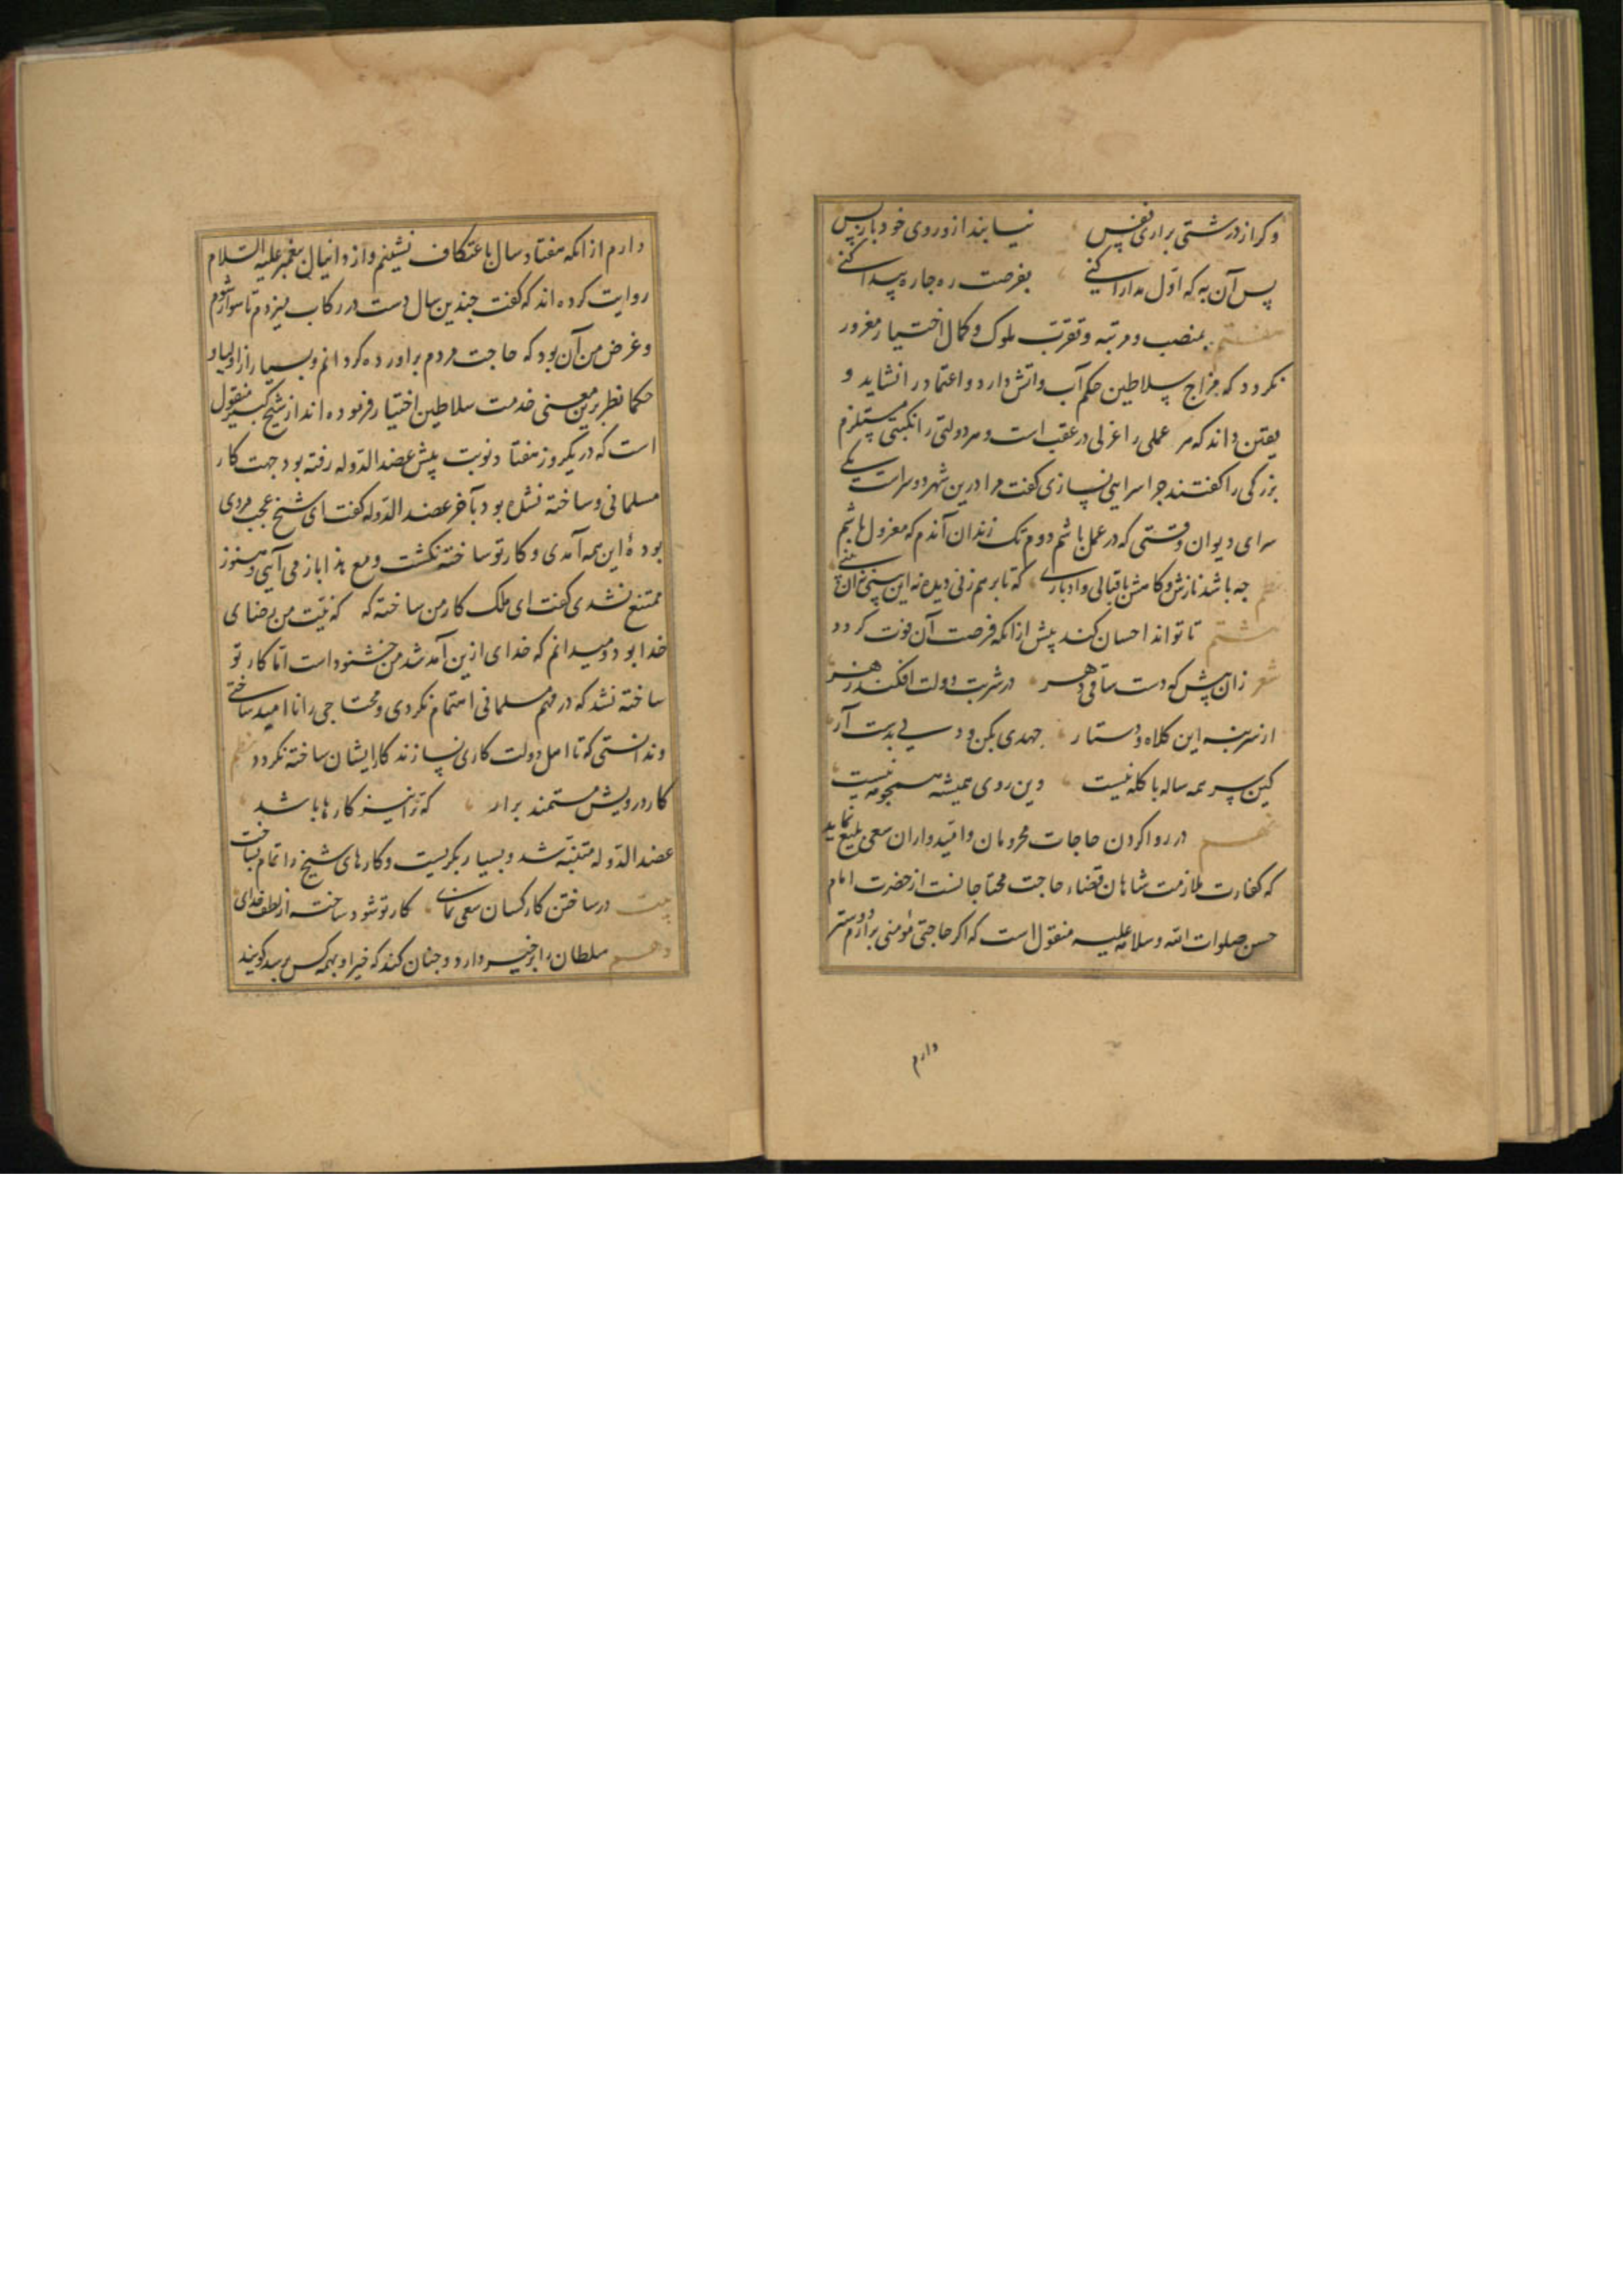 وکر از درشتی براری نفس نیابند ازو روی خود بازپس
پس آن به که اول مدارا کنی بفرصت ره جاره پیدا کنی
هفتم بمنصب و مرتبه و تقرب ملوک و کمال اختیار مغرور
نکردد که مزاج سلاطین حکم آب و اتش دارد و اعتماد را نشاید و
یقین داند که هر عملی را عزلی در عقب است و هر دولتی را نکبتی مستلزم
بزرکی را کفتند جرا سرایی نسازی کفت مرا درین شهر دو سراست یکی
سرای دیوان وقتی که در عمل باشم دوم تک زندان آندم که معزول باشم
نظم جه باشد نازش و کاهش باقبالی و ادباری که تا برهم زنی دیده نه این بینی نه آن بینی
هشتم تا تواند احسان کند پیش ازانکه فرصت آن فوت کردد
شعر زان پیش که دست ساقی دهر در شربت دولت افکند زهر
از سر بنه این کلاه و دستار جهدی بکن و دلی بدست آر
کین سر همه ساله با کله نیست وین روی همیشه همجو مه نیست
نهم در روا کردن حاجات محرومان و امیدواران سعی بلیغ نماید
که کفارت ملازمت شاهان قضاء حاجت محتاجانست از حضرت امام
حسن صلوات الله و سلامه علیه منقول است که اکر حاجتی مؤمنی برآرم دوستر
دارم
دارم ازانکه هفتاد سال باعتکاف نشینم و از دانیال پیغمبر علیه السلام
روایت کرده اند که کفت جندین سال دست در رکاب میزدم تا سوار شوم
و غرض من آن بود که حاجت مردم براورده کردانم و بسیار از اولیا و
حکما نظر برین معنی خدمت سلاطین اختیار فرموده اند از شیخ کبیر منقول
است که در یکروز هفتاد نوبت پیش عضد الدوله رفته بود جهت کار
مسلمانی و ساخته نشده بود بآخر عضد الدوله کفت ای شیخ عجب مردی
بودهٔ این همه آمدی و کار تو ساخته نکشت و مع هذا باز می آیی و هنوز
ممتنع نشدی کفت ای ملک کار من ساخته که که نیت من رضای
خدا بود و میدانم که خدای ازین آمد شد من خشنود است اما کار تو
ساخته نشد که در مهم مسلمانی اهتمام نکردی و محتاجی را ناامید ساختی
و ندانستی که تا اهل دولت کاری نسازند کار ایشان ساخته نکردد نظم
کار درویش مستمند برار که ترا نیز کارها باشد
عضد الدوله متنبه شد و بسیار بکریست و کارهای شیخ را تمام بساخت
بیت در ساختن کار کسان سعی نمای کار تو شود ساخته از لطف خدای
دهم سلطان را بر خیر دارد و جنان کند که خیر او بهمه کس برسد کویند